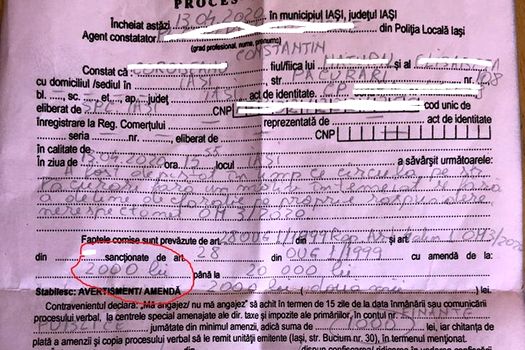 PROCES
Încheiat astăzi 13.04.2020, în municipiul IAȘI, județul IAȘI
Agent constatator din Poliția Locală Iași
(grad profesional, nume, prenume)
CONSTANTIN
Constată că fiul/fiica lui și al
cu domiciliul /sediul în IAȘI, str. PĂCURARI nr.
bl. , sc. , et. , ap. județ IAȘI act de identitate.
eliberat de CNP cod unic de
înregistrare la Reg. Comerțului reprezentată de act de identitate
seria nr. , eliberat de CNP
în calitate de
În ziua de 13.04.2020 ora locul IAȘI a săvârșit următoarele:
A fost depistat în timp ce circula pe str.
Păcurari fără un motiv întemeiat și fără
a deține declarație pe proprie răspundere
nerespectând OM 3/2020
Faptele comise sunt prevăzute de art. 28 OUG 1/1999 și art.
din sancționate de art. 28 din OUG 1/1999 cu amendă de la:
2000 lei până la 20 000 lei
Stabilesc: AVERTISMENT/ AMENDĂ 2000 lei (două mii) lei.
Contravenientul declară: „Mă angajez/ nu mă angajez" să achit în termen de 15 zile de la data înmânării sau comunicării
procesului verbal, la centrele special amenajate ale dir. taxe și impozite ale primăriilor, în contul nr. FINANȚE
PUBLICE jumătate din minimul amenzii, adică suma de 1000 lei, iar chitanța de
plată a amenzii și copia procesului verbal să le remit unității emitente (Iași, str. Bucium nr. 30), în termenul menționat.